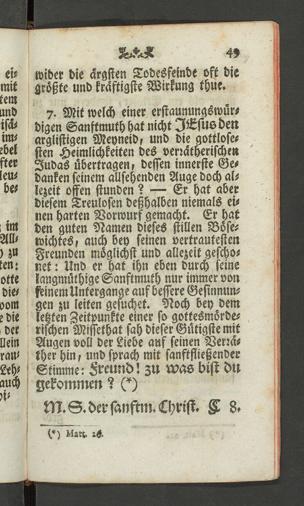 49
wider die ärgsten Todesfeinde oft die
größte und kräftigste Wirkung thue.
7. Mit welch einer erstaunungswür-
digen Sanftmuth hat nicht JEsus den
arglistigen Meyneid, und die gottlose-
sten Heimlichkeiten des verätherischen
Judas übertragen, dessen innerste Ge-
danken seinem allsehenden Auge doch al-
lezeit offen stunden? — Er hat aber
diesem Treulosen deßhalben niemals ei-
nen harten Vorwurf gemacht. Er hat
den guten Namen dieses stillen Böse-
wichtes, auch bey seinen vertrautesten
Freunden möglichst und allezeit gescho-
net: Und er hat ihn eben durch seine
langmüthige Sanftmuth nur immer von
seinem Untergange auf bessere Gesinnun-
gen zu leiten gesuchet. Noch bey dem
letzten Zeitpunkte einer so gottesmörde-
rischen Missethat sah dieser Gütigste mit
Augen voll der Liebe auf seinen Verrä-
ther hin, und sprach mit sanftfließender
Stimme: Freund! zu was bist du
gekommen? (*)
M. S. der sanftm. Christ. C 8.
(*) Matt. 26.